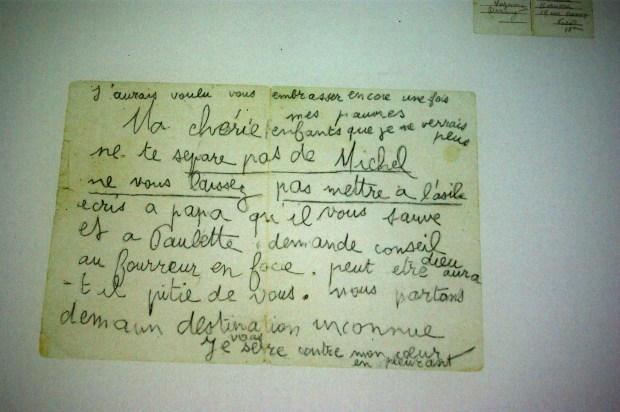 J'aurais voulu vous embrasser encore une fois
mes pauvres
Ma chérie enfants que je ne verrais
plus
ne te separe pas de Michel
ne vous laissez pas mettre a l'ásile
ecris a papa qu'il vous sauve
et a Paulette, demande conseil
au fourreur en face. peut etre dieu aura
-t il pitie de vous. nous partons
demain destination inconnue
Je vous serre contre mon cœur
en pleurant